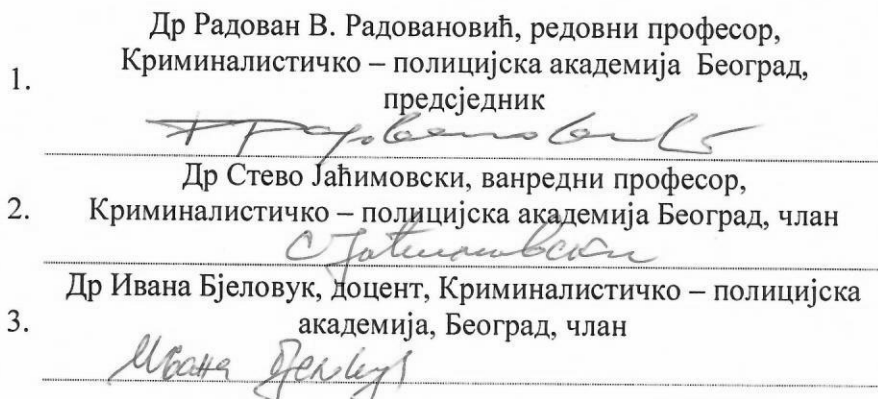 Др Радован В. Радовановић, редовни професор,
1. Криминалистичко – полицијска академија Београд,
предсједник
Др Стево Јаћимовски, ванредни професор,
2. Криминалистичко – полицијска академија Београд, члан
Др Ивана Бјеловук, доцент, Криминалистичко – полицијска
3. академија, Београд, члан
Ивана Бјеловук